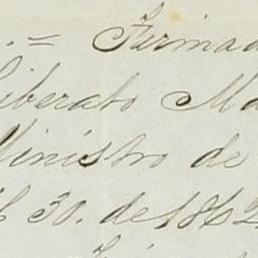 . = Firmad
iberato Ma
Ministro de
il 30. de 1862